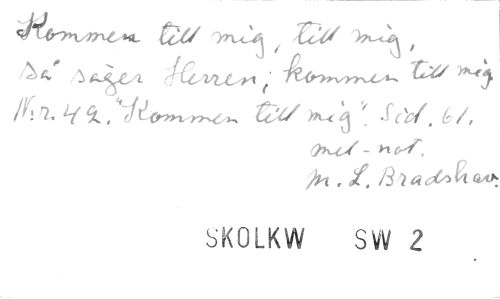 Kommen till mig, till mig,
så säger Herren; kommen till mig
N:r. 42. "Kommen till mig". Sid. 61.
mel-not.
M. L. Bradshaw.
SKOLKW SW 2